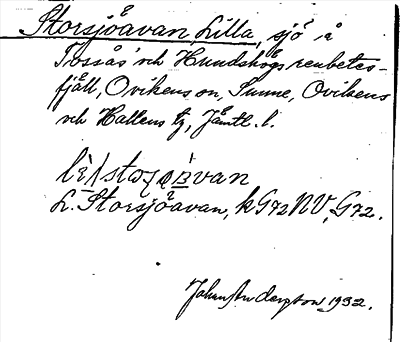 Storsjöavan, Lilla, sjö å
Tossås och Hundshögs renbetes-
fjäll, Ovikens sn, Sunne, Ovikens
och Hallens tg, Jämtl. l.
L. Storsjöavan, k G72 NV, G72.
John Anderzson 1932.